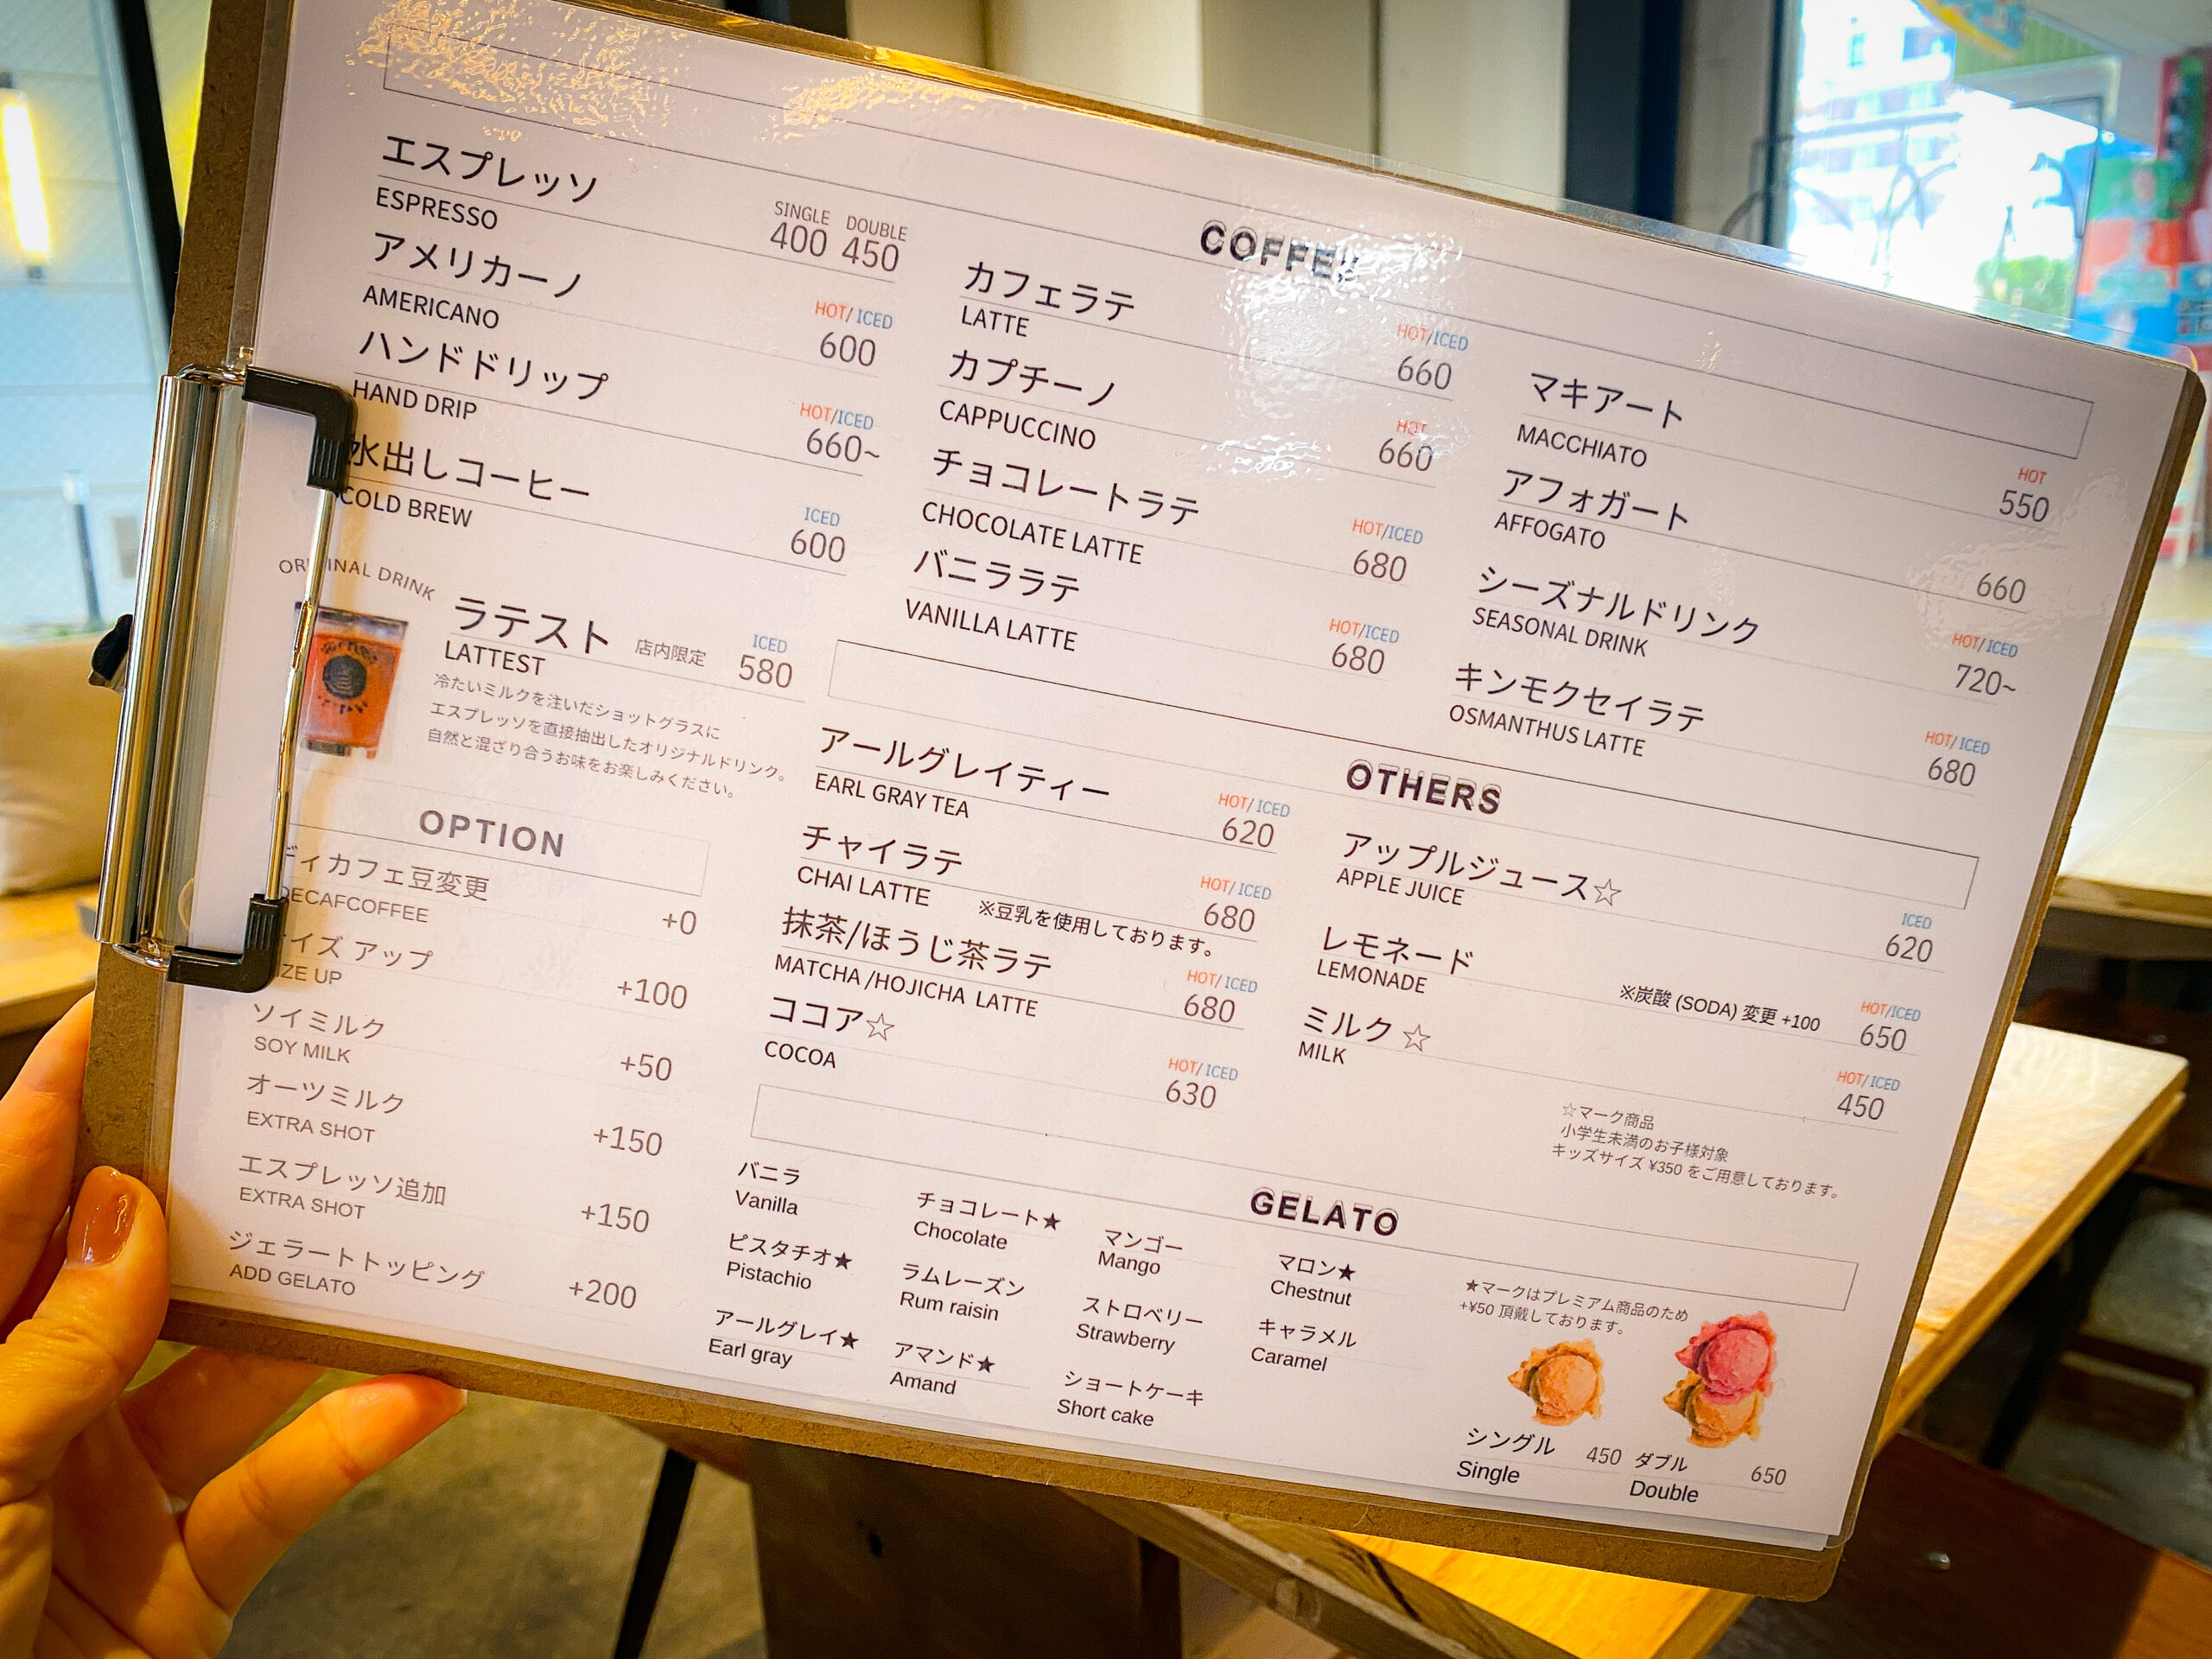 COFFE
エスプレッソ
ESPRESSO
SINGLE DOUBLE
400 450
アメリカーノ
AMERICANO
HOT/ICED
600
ハンドドリップ
HAND DRIP
HOT/ICED
660~
水出しコーヒー
COLD BREW
ICED
600
ORIGINAL DRINK
ラテスト 店内限定
LATTEST
ICED
580
冷たいミルクを注いだショットグラスに
エスプレッソを直接抽出したオリジナルドリンク。
自然と混ざり合うお味をお楽しみください。
カフェラテ
LATTE
HOT/ICED
660
カプチーノ
CAPPUCCINO
HOT
660
チョコレートラテ
CHOCOLATE LATTE
HOT/ICED
680
バニララテ
VANILLA LATTE
HOT/ICED
680
マキアート
MACCHIATO
HOT
550
アフォガート
AFFOGATO
660
シーズナルドリンク
SEASONAL DRINK
HOT/ICED
720~
キンモクセイラテ
OSMANTHUS LATTE
HOT/ICED
680
OPTION
ディカフェ豆変更
DECAFCOFFEE
+0
サイズ アップ
SIZE UP
+100
ソイミルク
SOY MILK
+50
オーツミルク
EXTRA SHOT
+150
エスプレッソ追加
EXTRA SHOT
+150
ジェラートトッピング
ADD GELATO
+200
OTHERS
アールグレイティー
EARL GRAY TEA
HOT/ICED
620
チャイラテ
CHAI LATTE
※豆乳を使用しております。
HOT/ICED
680
抹茶/ほうじ茶ラテ
MATCHA/HOJICHA LATTE
HOT/ICED
680
ココア☆
COCOA
HOT/ICED
630
アップルジュース☆
APPLE JUICE
ICED
620
レモネード
LEMONADE
※炭酸 (SODA) 変更 +100
HOT/ICED
650
ミルク ☆
MILK
HOT/ICED
450
☆マーク商品
小学生未満のお子様対象
キッズサイズ ¥350 をご用意しております。
GELATO
バニラ
Vanilla
チョコレート★
Chocolate
マンゴー
Mango
マロン★
Chestnut
ピスタチオ★
Pistachio
ラムレーズン
Rum raisin
ストロベリー
Strawberry
キャラメル
Caramel
アールグレイ★
Earl gray
アマンド★
Amand
ショートケーキ
Short cake
★マークはプレミアム商品のため
+¥50 頂戴しております。
シングル 450
Single
ダブル 650
Double